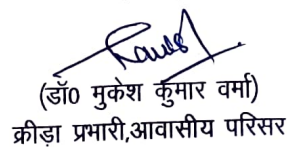 (डॉ0 मुकेश कुमार वर्मा)
क्रीड़ा प्रभारी,आवासीय परिसर